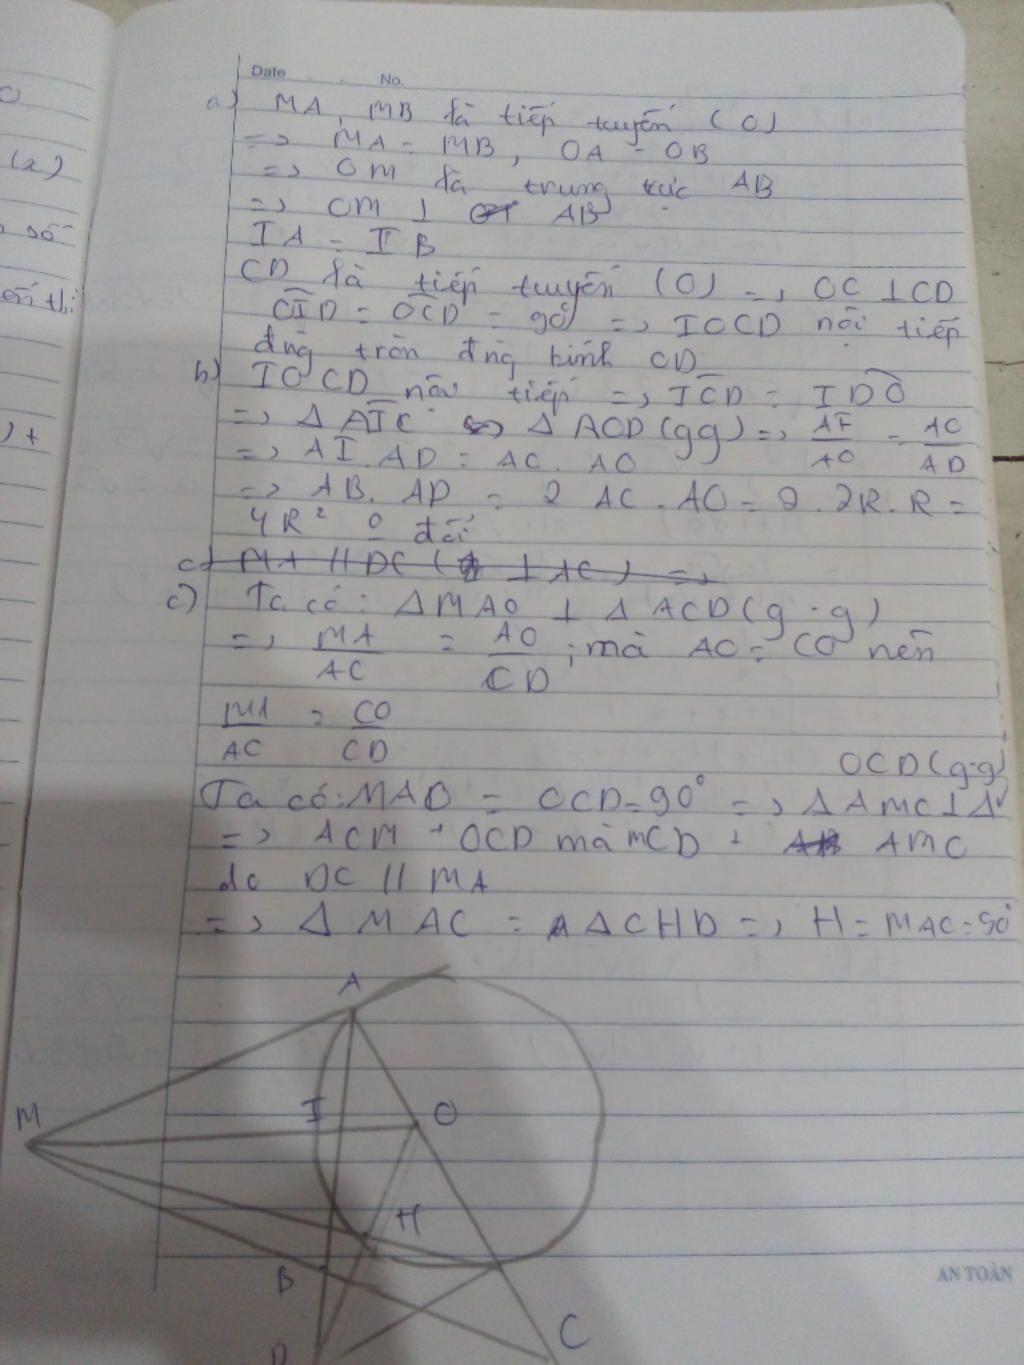 Date No.
a) MA, MB là tiếp tuyến (O)
=> MA = MB, OA = OB
=> OM là trung trực AB
=> OM ⊥ AB
IA = IB
CD là tiếp tuyến (O) => OC ⊥ CD
CID = OCD = 90° => IOCD nội tiếp
đng tròn đng kính CD
b) IOCD nội tiếp => ICD = IDO
=> Δ AIC ∽ Δ AOD (gg) => AI/AO = AC/AD
=> AI. AD = AC. AO
=> AB. AD = 2 AC. AO = 2. 2R. R =
4R² đổi
c) MA // DC ( ⊥ AC) =>
c) Ta có: Δ MAO ⊥ Δ ACD (g.g)
=> MA/AC = AO/CD ; mà AO = CO nên
MA/AC = CO/CD
OCD (g.g)
Ta có: MAO = OCD = 90° => Δ AMC ⊥ Δ
=> ACM + OCD mà MCD + AMC
do DC // MA
=> Δ MAC = Δ CHD => H = MAC = 90°
A
M
I
O
H
B
C
D
AN TOÀN
(2)
số